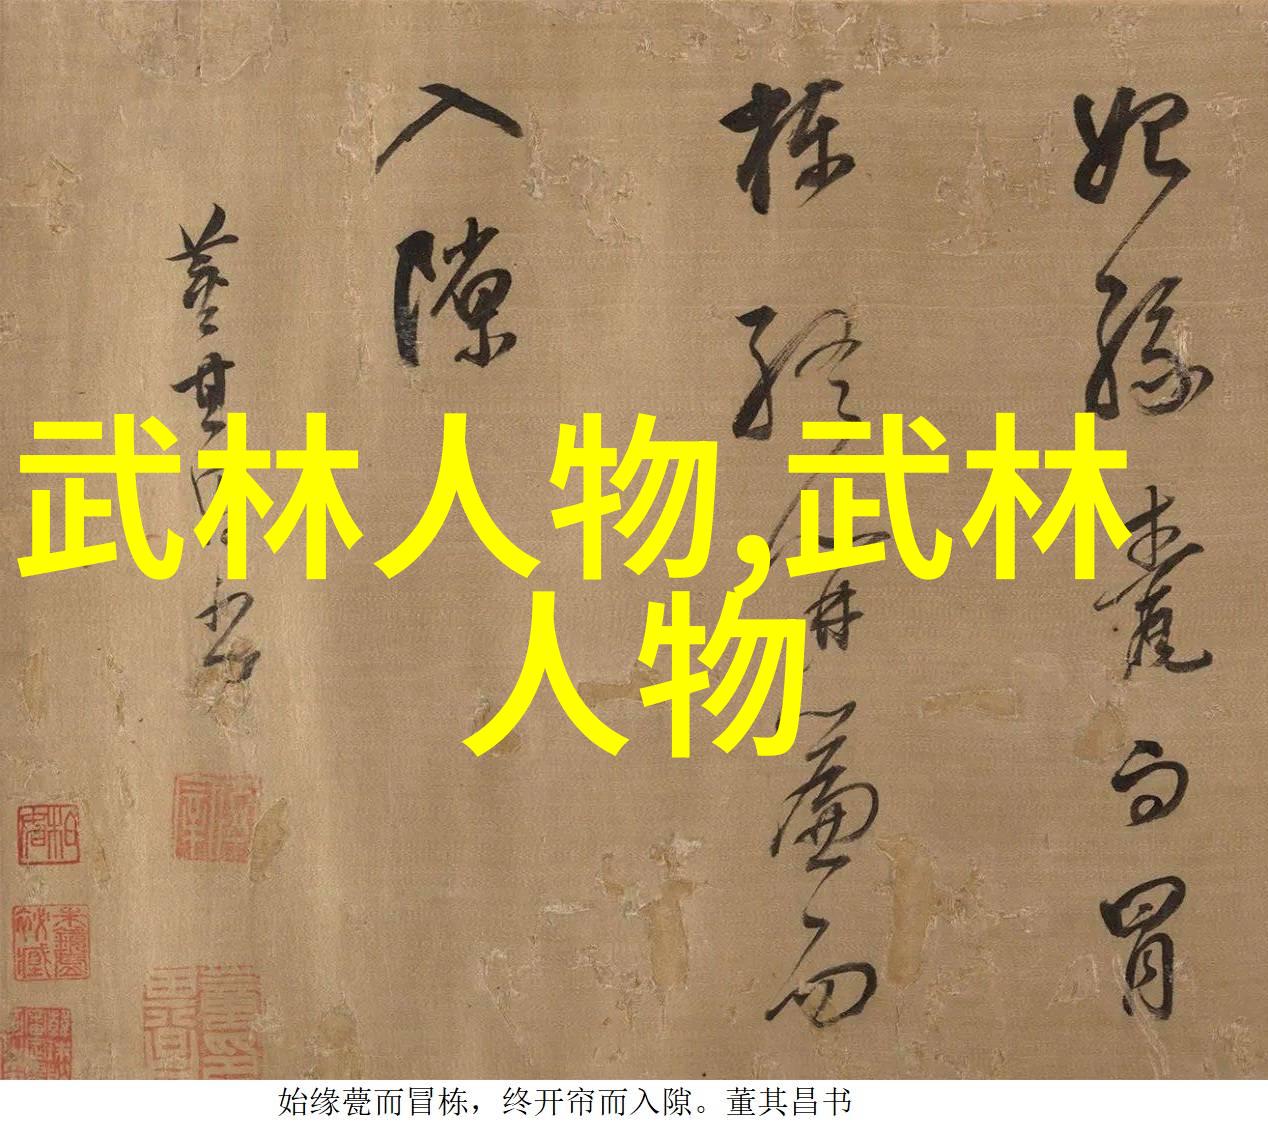 始缘甍而冒
栋终开帘而
入隙
董其昌书
武林人物,武林
人物
始缘甍而冒栋，终开帘而入隙。董其昌书